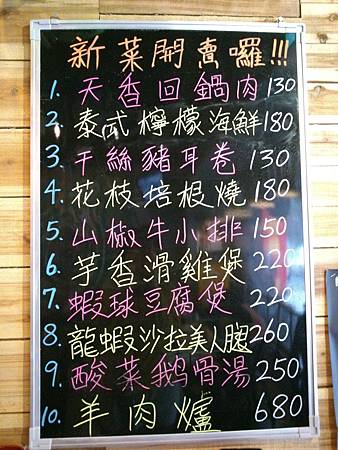 新菜開賣囉!!!
1. 天香回鍋肉 130
2. 泰式檸檬海鮮 180
3. 干絲豬耳卷 130
4. 花枝培根燒 180
5. 山椒牛小排 150
6. 芋香滑雞煲 220
7. 蝦球豆腐煲 220
8. 龍蝦沙拉美人腿 260
9. 酸菜鵝骨湯 250
10. 羊肉爐 680